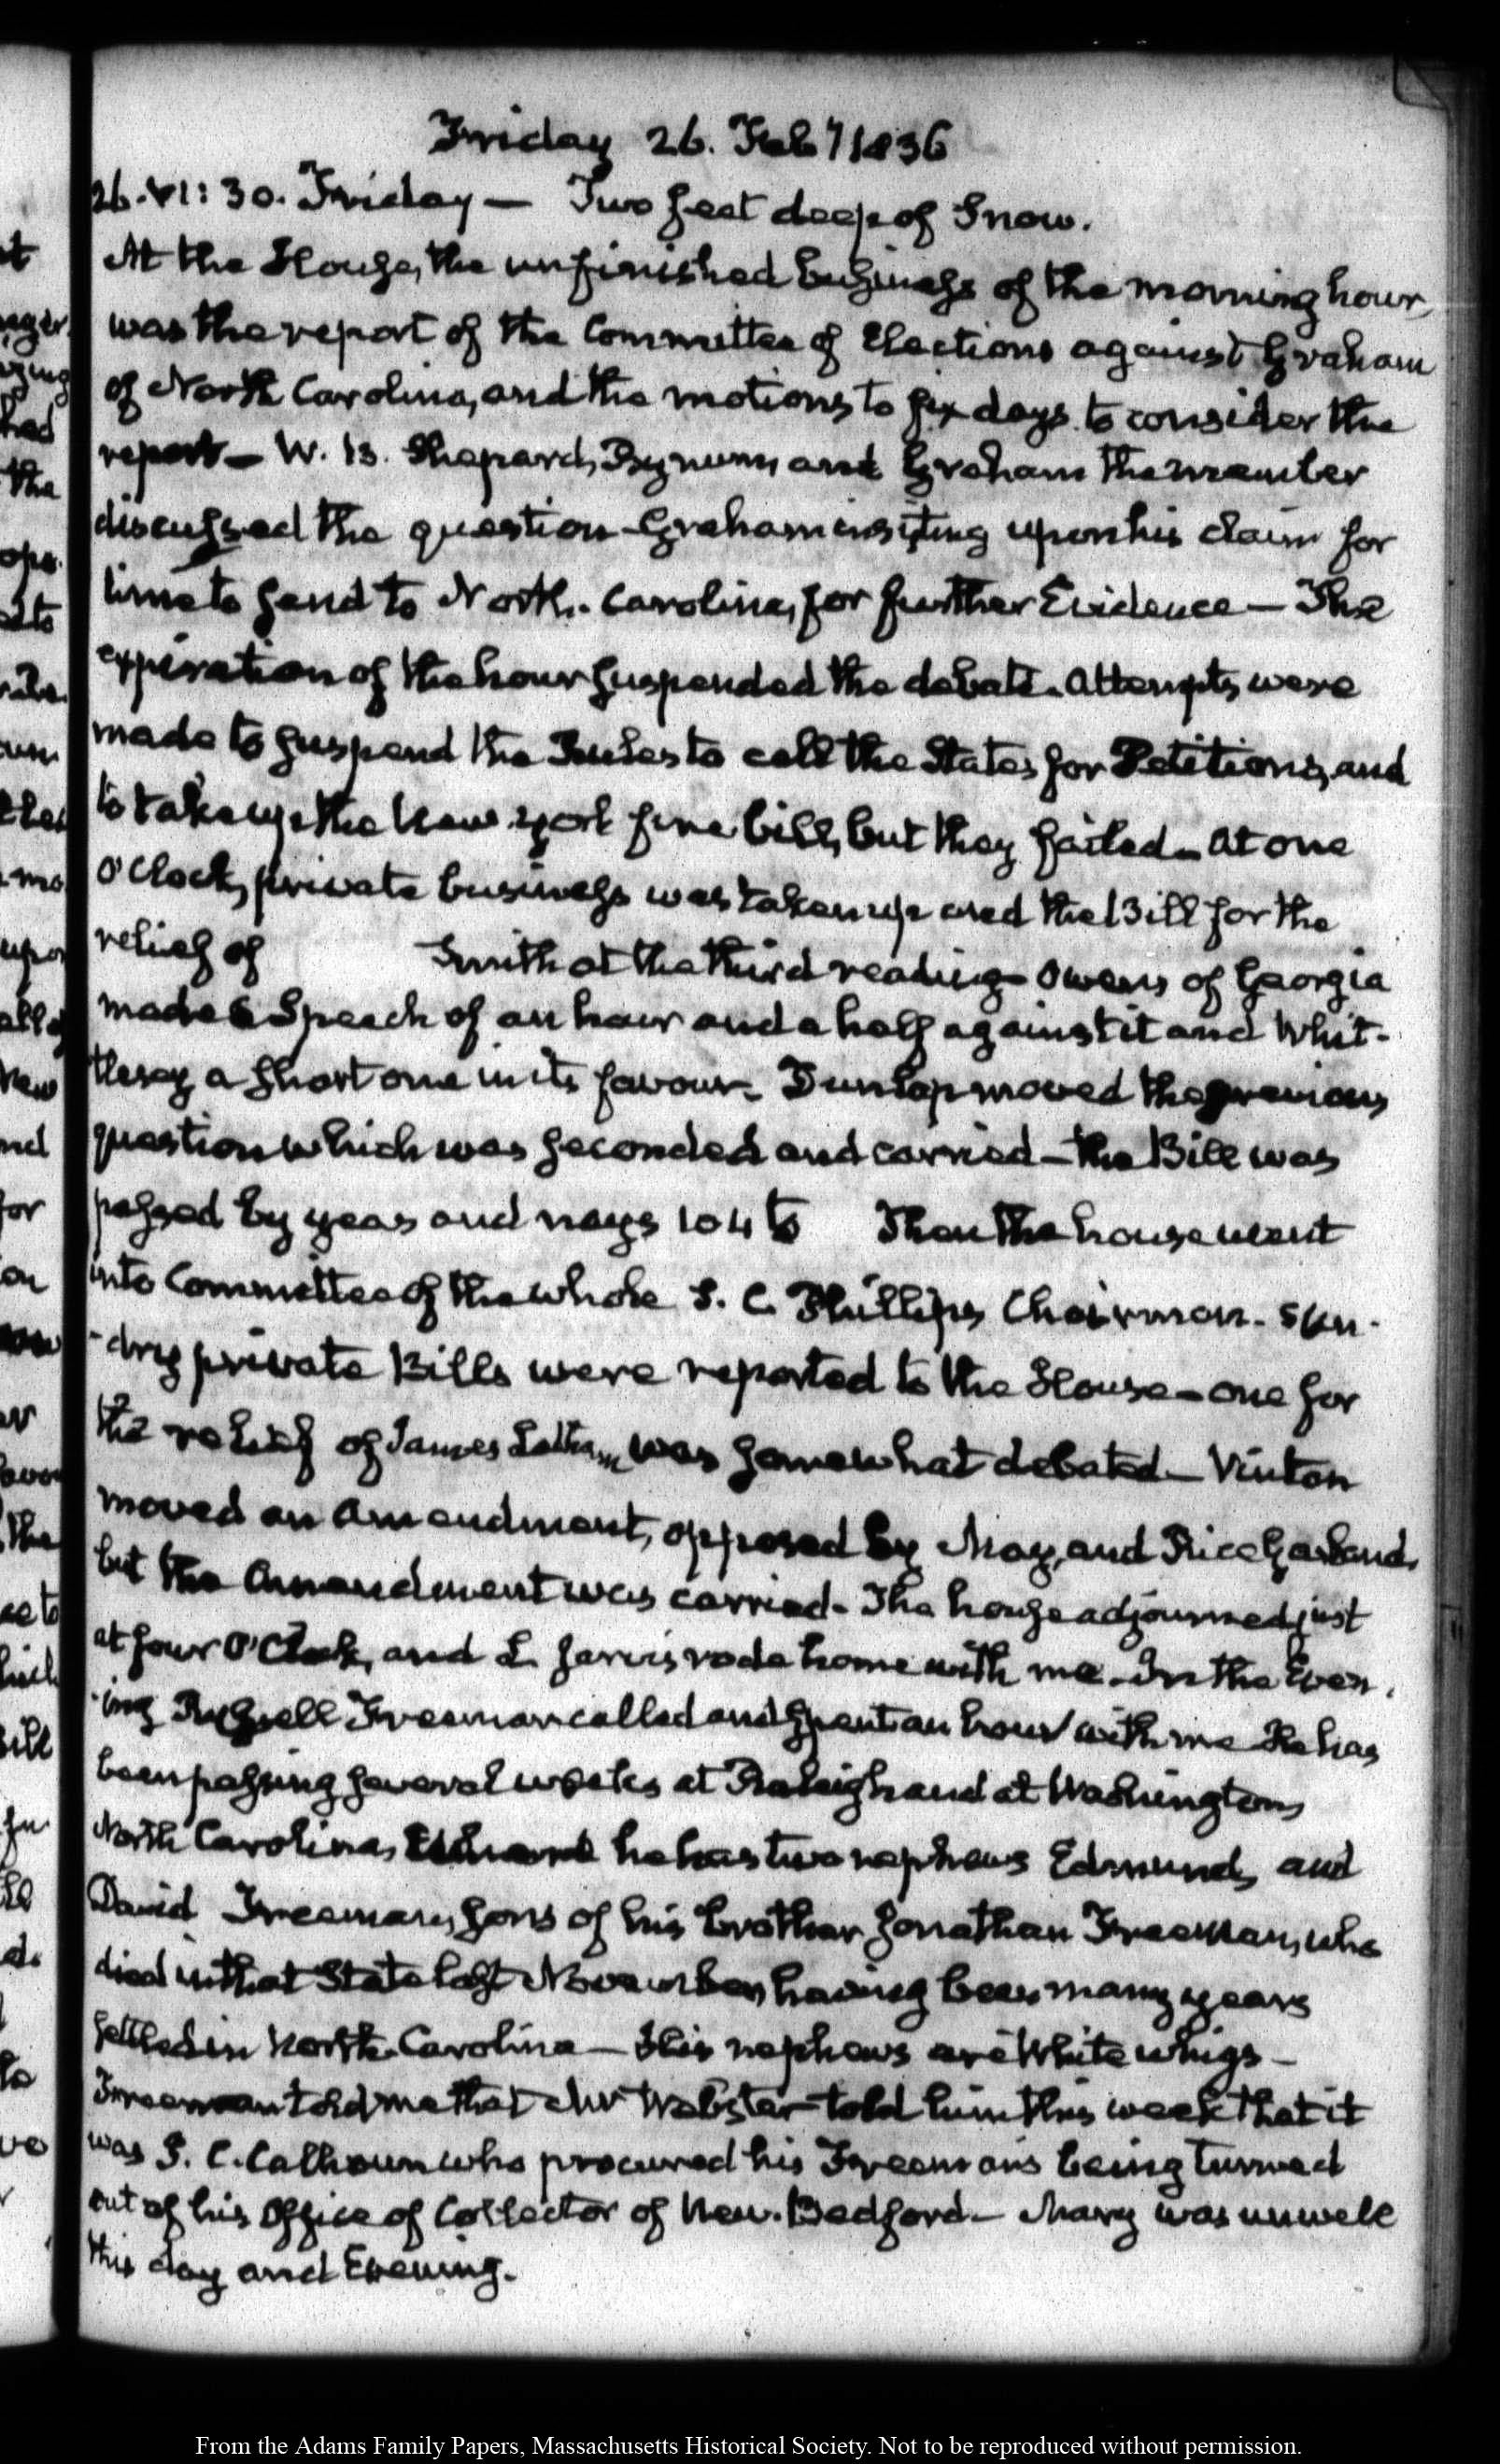 Friday 26. Feby 1836
26. VI:30. Friday — Two feet deep of Snow.
At the House, the unfinished business of the morning hour,
was the report of the Committee of Elections against Graham
of North Carolina, and the motions to fix days to consider the
report — W. B. Shepard, Bynum, and Graham the member
discussed the question — Graham insisting upon his claim for
time to send to North-Carolina, for further Evidence — The
expiration of the hour suspended the debate. Attempts were
made to suspend the Rules to call the States for Petitions, and
to take up the New-York fire bill, but they failed — at one
O'Clock, private business was taken up and the Bill for the
relief of Smith at the third reading — Owens of Georgia
made a Speech of an hour and a half against it and Whit-
tlesey a short one in its favour — Dunlap moved the previous
question which was seconded and carried — the Bill was
passed by yeas and nays 104 to Then the house went
into Committee of the whole S. C. Phillips Chairman. Sun-
-dry private Bills were reported to the House — one for
the relief of James Latham was somewhat debated — Vinton
moved an Amendment, opposed by May, and Rice Garland,
but the Amendment was carried. The house adjourned just
at four O'Clock, and L. Jarvis rode home with me. In the Even-
-ing Russell Freeman called and spent an hour with me He has
been passing several weeks at Raleigh and at Washington,
North Carolina, he has two nephews Edmund, and
David Freeman, sons of his brother Jonathan Freeman, who
died in that State last November, having been many years
settled in North-Carolina — His nephews are White whigs —
Freeman told me that Mr Webster told him this week that it
was J. C. Calhoun who procured his Freeman's being turned
out of his Office of Collector of New-Bedford — Mary was unwell
this day and Evening.
From the Adams Family Papers, Massachusetts Historical Society. Not to be reproduced without permission.